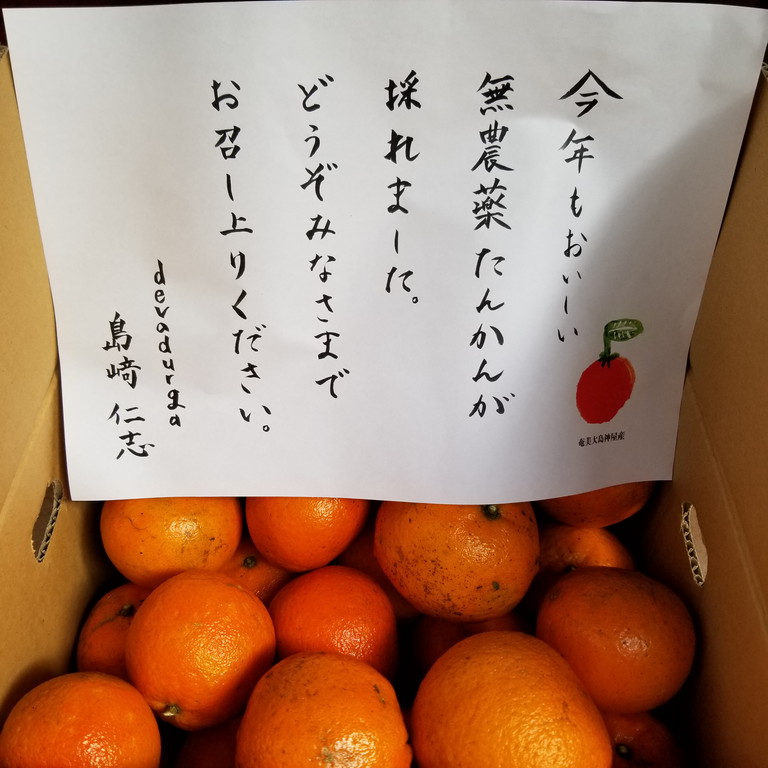 今年もおいしい
無農薬たんかんが
採れました。
どうぞみなさまで
お召し上りください。
devadurga
島﨑 仁志
奄美大島神屋産